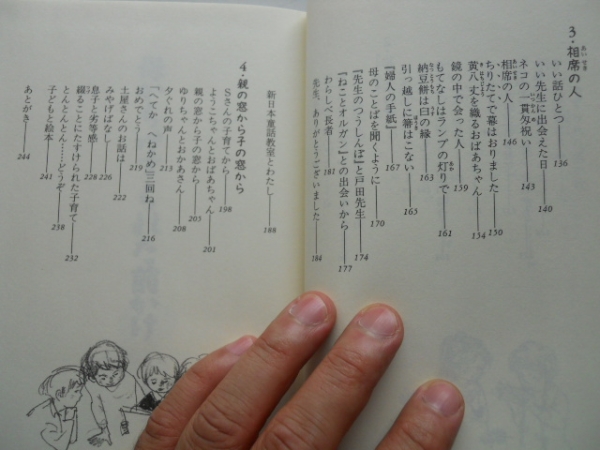 3・相席の人
いい話ひとつ——136
いい先生に出会えた日——140
ネコの一貫匁祝い——143
相席の人——146
ちりたてで幕はおりました——150
黄八丈を織るおばあちゃん——154
鏡の中で会った人——159
もてなしはランプの灯りで——161
納豆餅は臼の縁——163
引っ越しに箒はこない——165
『婦人の手紙』——167
母のことばを聞くように——170
『先生のつうしんぼ』と戸田先生——174
『ねことオルガン』との出会いから——177
わらしべ長者——181
先生、ありがとうございました——184
新日本童話教室とわたし——188
4・親の窓から子の窓から
Sさんの子育てから——198
ようこちゃんとおばあちゃん——201
親の窓から子の窓から——205
ゆりちゃんとおかあさん——208
夕ぐれの声——213
「へてか へねかめ」三回ね——216
おめでとう——219
土屋さんのお話は——222
みやげばなし——226
息子と劣等感——228
綴ることにたすけられた子育て——232
とんとんとん…どうぞ——238
子どもと絵本——241
あとがき——244